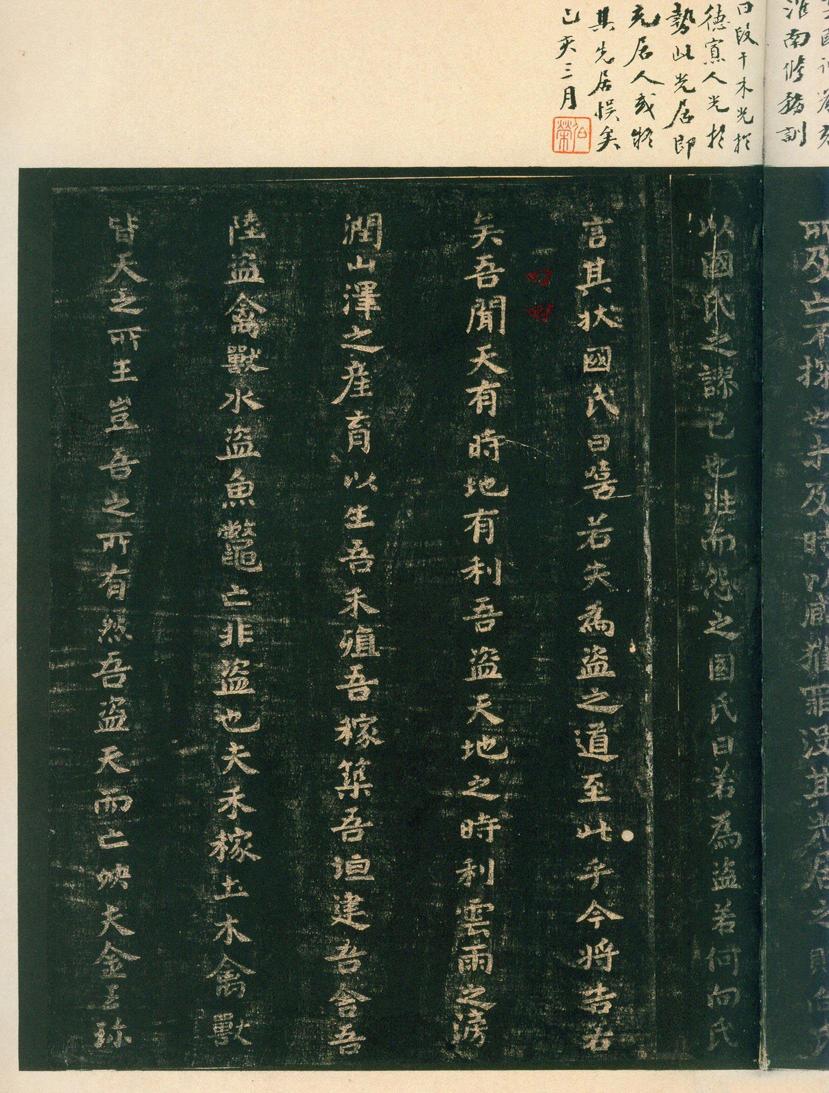 淮南脩務訓
曰段干木光於
德寡人光於
勢此光居即
居人或於
其先居悮矣
己亥三月
所及亡不探也未及時以贓獲罪沒其先居之財向氏
以國氏之謬己也往而怨之國氏曰若為盜若何向氏
言其狀國氏曰譆若失為盜之道至此乎今將告若
矣吾聞天有時地有利吾盜天地之時利雲雨之滂
潤山澤之產育以生吾禾殖吾稼築吾垣建吾舍吾
陸盜禽獸水盜魚鼈亡非盜也夫禾稼土木禽獸
皆天之所生豈吾之所有然吾盜天而亡殃夫金玉珍